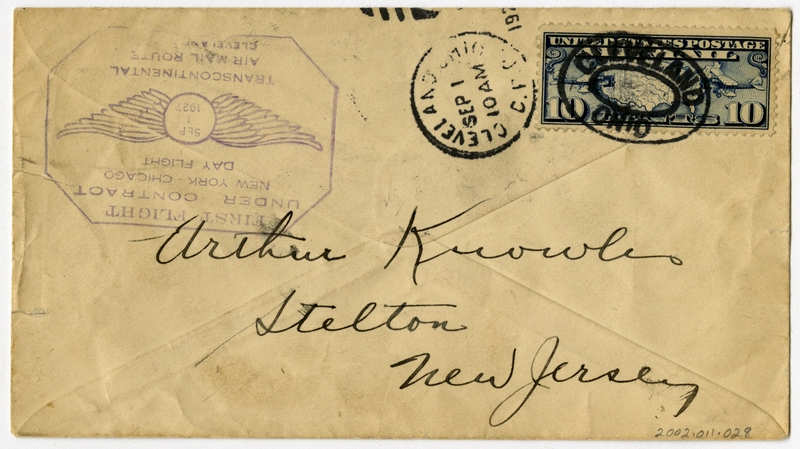 FIRST FLIGHT
UNDER CONTRACT
NEW YORK · CHICAGO
DAY FLIGHT
SEP
1
1927
TRANSCONTINENTAL
AIR MAIL ROUTE
CLEVELAND
CLEVELAND OHIO
SEP 1
10 AM
UNITED STATES POSTAGE
AIR MAIL
10 CENTS 10
CLEVELAND
OHIO
Arthur Knowles
Stelton
New Jersey
2002·011·028